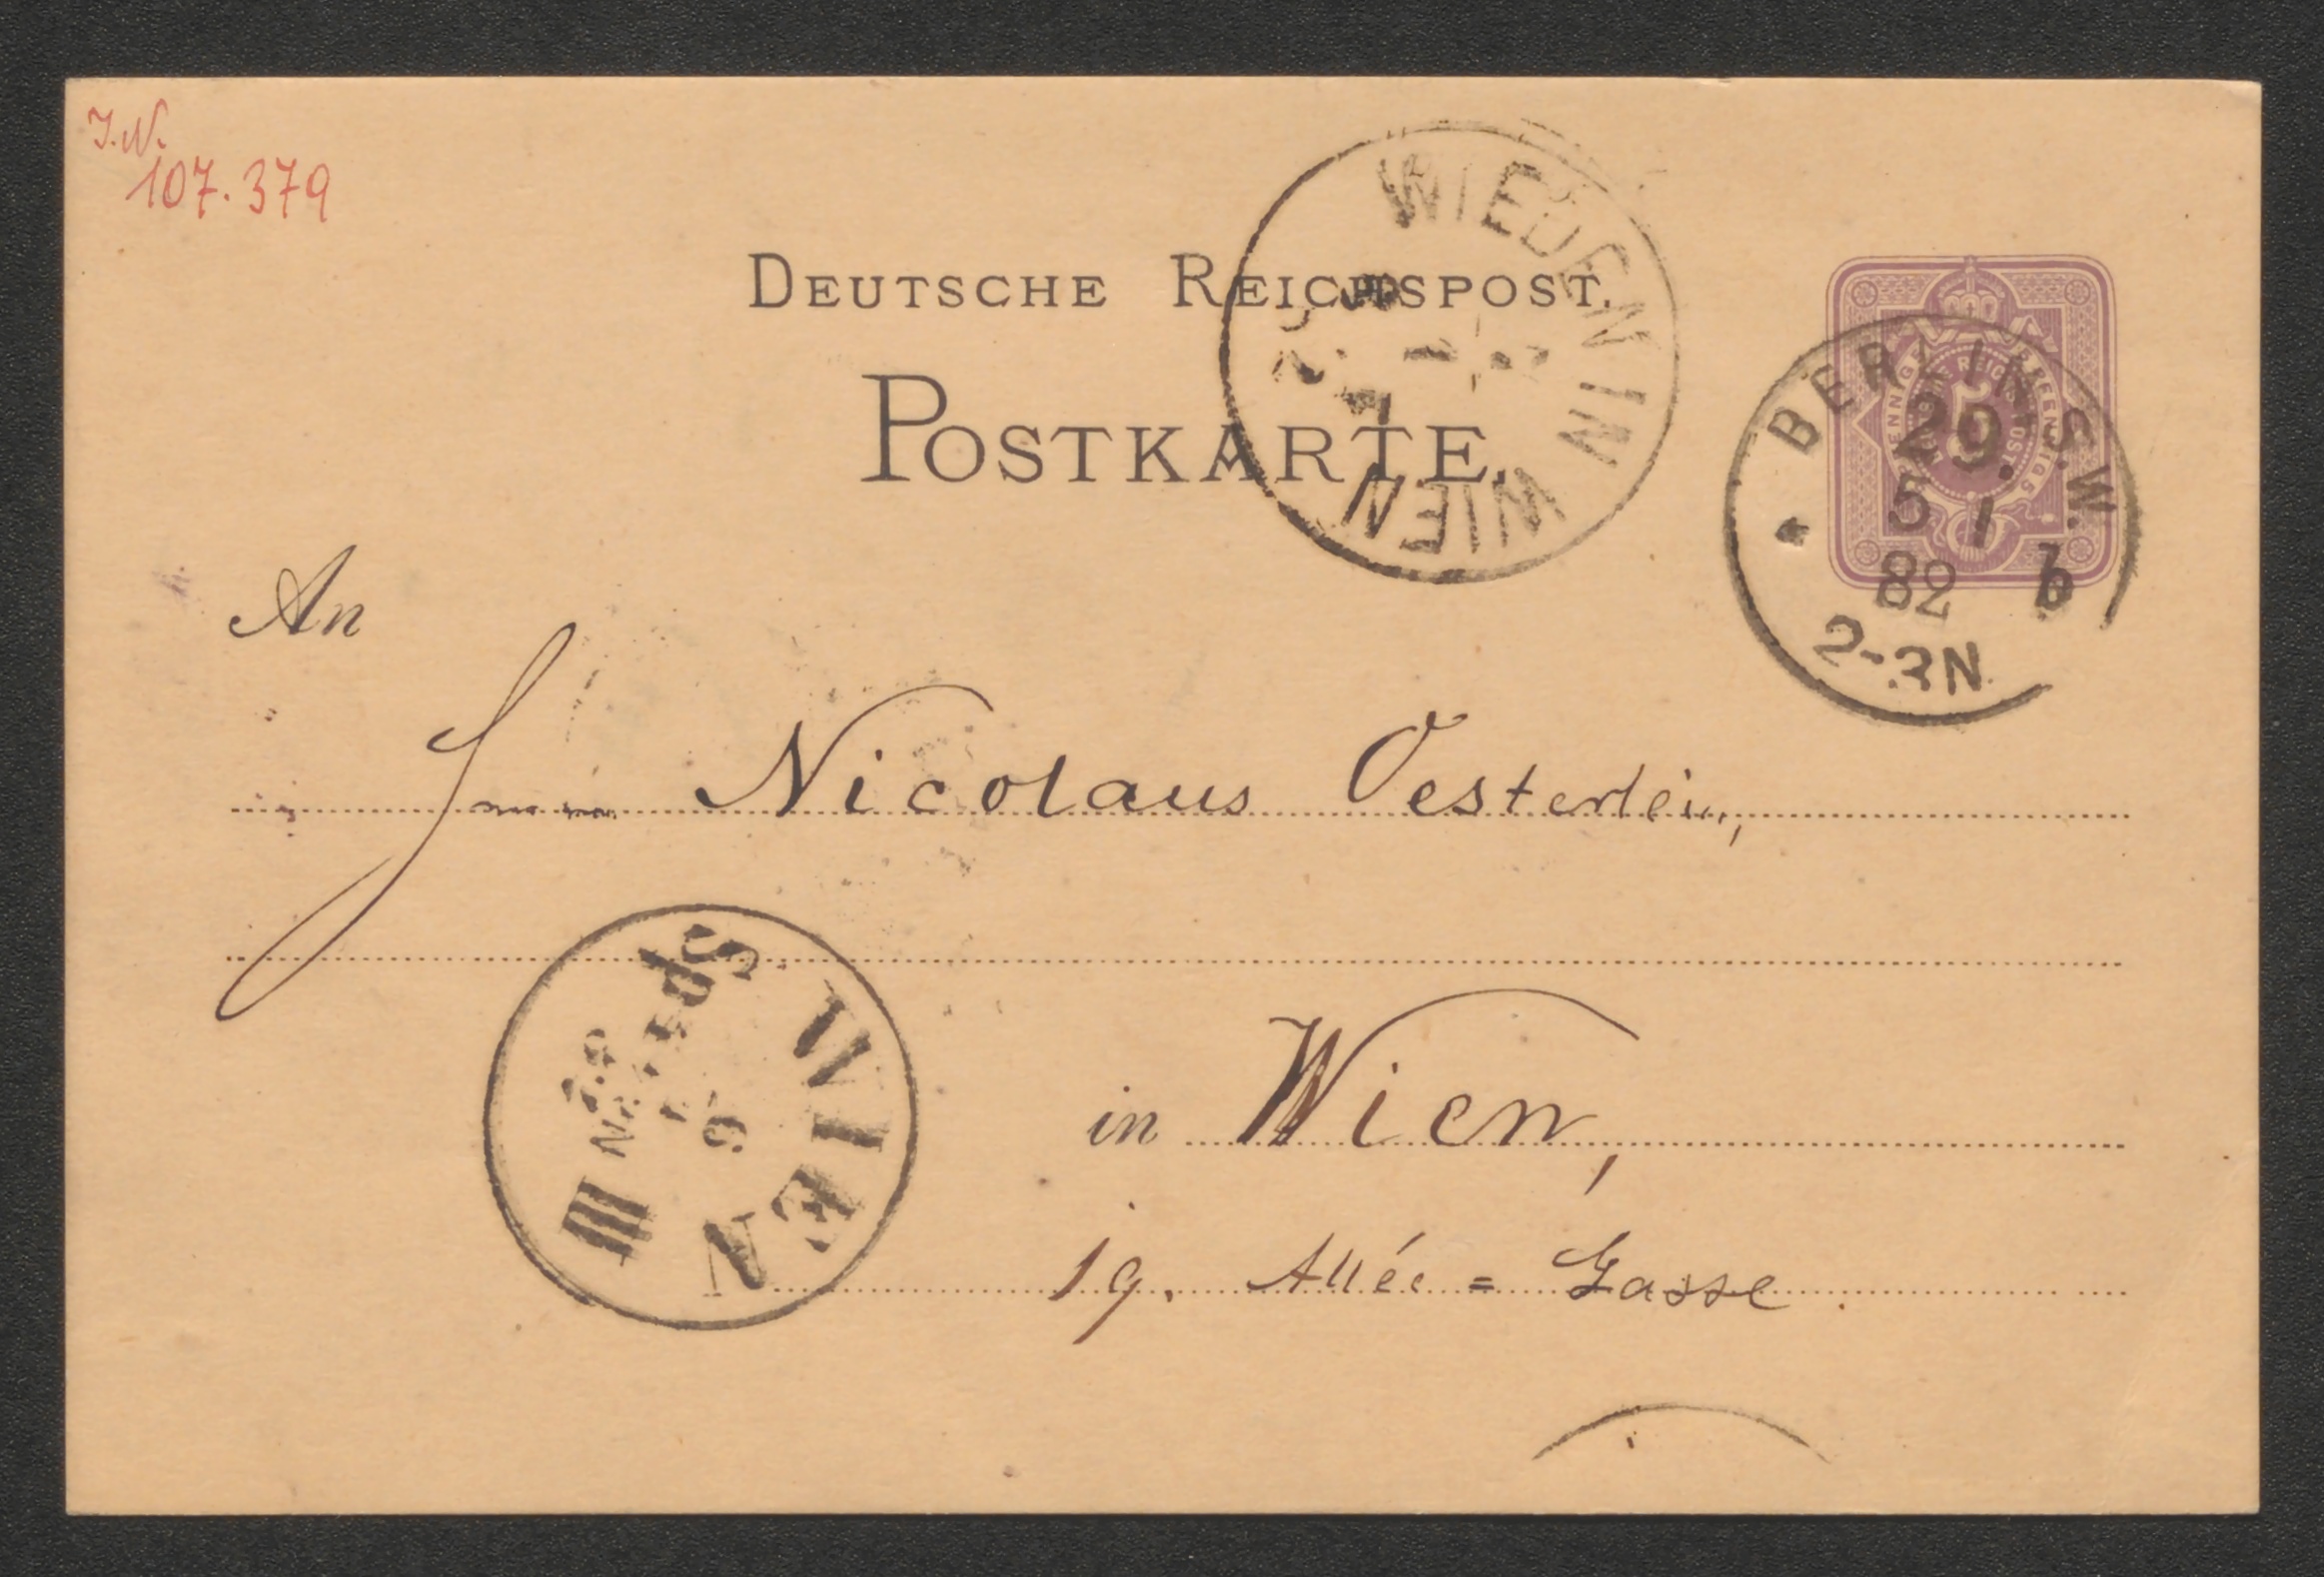 J.N.
107.379
DEUTSCHE REICHSPOST.
POSTKARTE.
WIEDEN IN
WIEN
BERLIN, S.W.
29.
5 1
82
2-3N
5
An
Nicolaus Oesterlein,
in Wien,
19. Allée = Gasse
WIEN
III